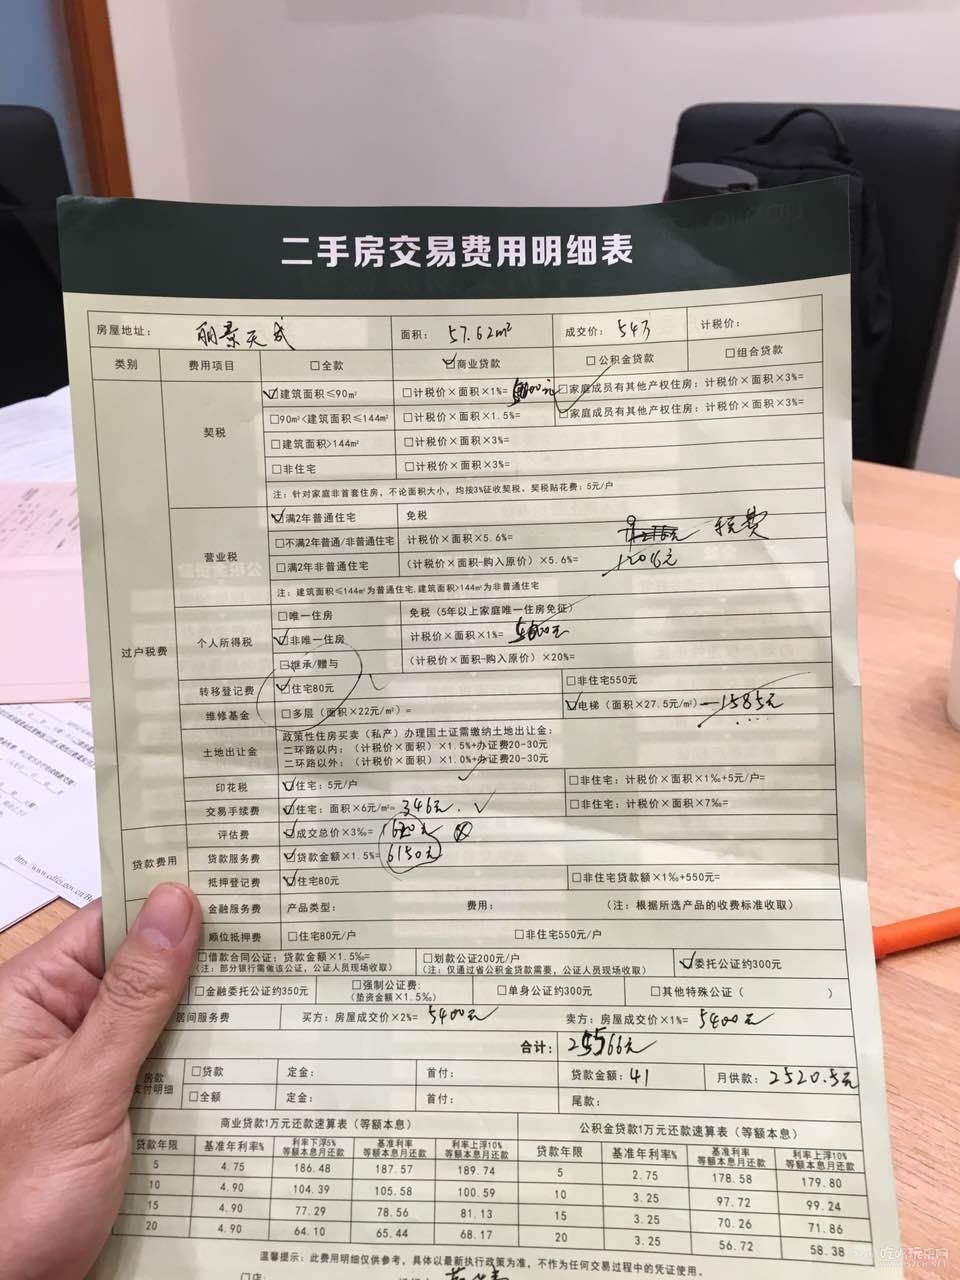 二手房交易费用明细表
房屋地址： 丽景天成 面积： 57.62m² 成交价： 543 计税价：
类别 费用项目 □全款 ☑商业贷款 □公积金贷款 □组合贷款
过户税费
契税
☑建筑面积≤90m² □计税价×面积×1%= □家庭成员有其他产权住房：计税价×面积×3%=
□90m²<建筑面积≤144m² □计税价×面积×1.5%= □家庭成员有其他产权住房：计税价×面积×3%=
□建筑面积>144m² □计税价×面积×3%=
□非住宅 □计税价×面积×3%=
注：针对家庭非首套住房，不论面积大小，均按3%征收契税。契税贴花费：5元/户
营业税
☑满2年普通住宅 免税
□不满2年普通/非普通住宅 计税价×面积×5.6%= 税费
□满2年非普通住宅 （计税价×面积-购入原价）×5.6%= 12016元
注：建筑面积≤144m²为普通住宅,建筑面积>144m²为非普通住宅
个人所得税
□唯一住房 免税（5年以上家庭唯一住房免征）
☑非唯一住房 计税价×面积×1%=
□继承/赠与 （计税价×面积-购入原价）×20%=
转移登记费 ☑住宅80元 □非住宅550元
维修基金 □多层（面积×22元/m²）= ☑电梯（面积×27.5元/m²） 1585元
土地出让金 政策性住房买卖（私产）办理国土证需缴纳土地出让金：
二环路以内：（计税价×面积）×1.5%+办证费20-30元
二环路以外：（计税价×面积）×1.0%+办证费20-30元
印花税 ☑住宅：5元/户 □非住宅：计税价×面积×1‰+5元/户=
交易手续费 ☑住宅：面积×6元/m²= 346元. ✓ □非住宅：计税价×面积×7‰=
贷款费用
评估费 ☑成交总价×3‰=
贷款服务费 ☑贷款金额×1.5%= 6150元
抵押登记费 ☑住宅80元 □非住宅贷款额×1‰+550元=
金融服务费 产品类型： 费用： （注：根据所选产品的收费标准收取）
顺位抵押费 □住宅80元/户 □非住宅550元/户
□借款合同公证：贷款金额×1.5‰= □划款公证200元/户 ☑委托公证约300元
（注：部分银行需做该公证，公证人员现场收取） （注：仅通过省公积金贷款需要，公证人员现场收取）
□金融委托公证约350元 □强制公证费： □单身公证约300元 □其他特殊公证（ ）
（垫资金额×1.5‰）
居间服务费 买方：房屋成交价×2%= 5400元 卖方：房屋成交价×1%= 5400元
合计： 25566元
房款 □贷款 定金： 首付： 贷款金额：41 月供款：2520.5元
支付明细 □全额 定金： 首付： 尾款：
商业贷款1万元还款速算表（等额本息） 公积金贷款1万元还款速算表（等额本息）
贷款年限 基准年利率% 利率下浮5%等额本息月还款 基准利率等额本息月还款 利率上浮10%等额本息月还款 贷款年限 基准年利率% 基准利率等额本息月还款 利率上浮10%等额本息月还款
5 4.75 186.48 187.57 189.74 5 2.75 178.58 179.80
10 4.90 104.39 105.58 100.59 10 3.25 97.72 99.24
15 4.90 77.29 78.56 81.13 15 3.25 70.26 71.86
20 4.90 64.10 65.44 68.17 20 3.25 56.72 58.38
温馨提示：此费用明细仅供参考，具体以最新执行政策为准，不作为任何交易过程中的凭证使用。
□店：